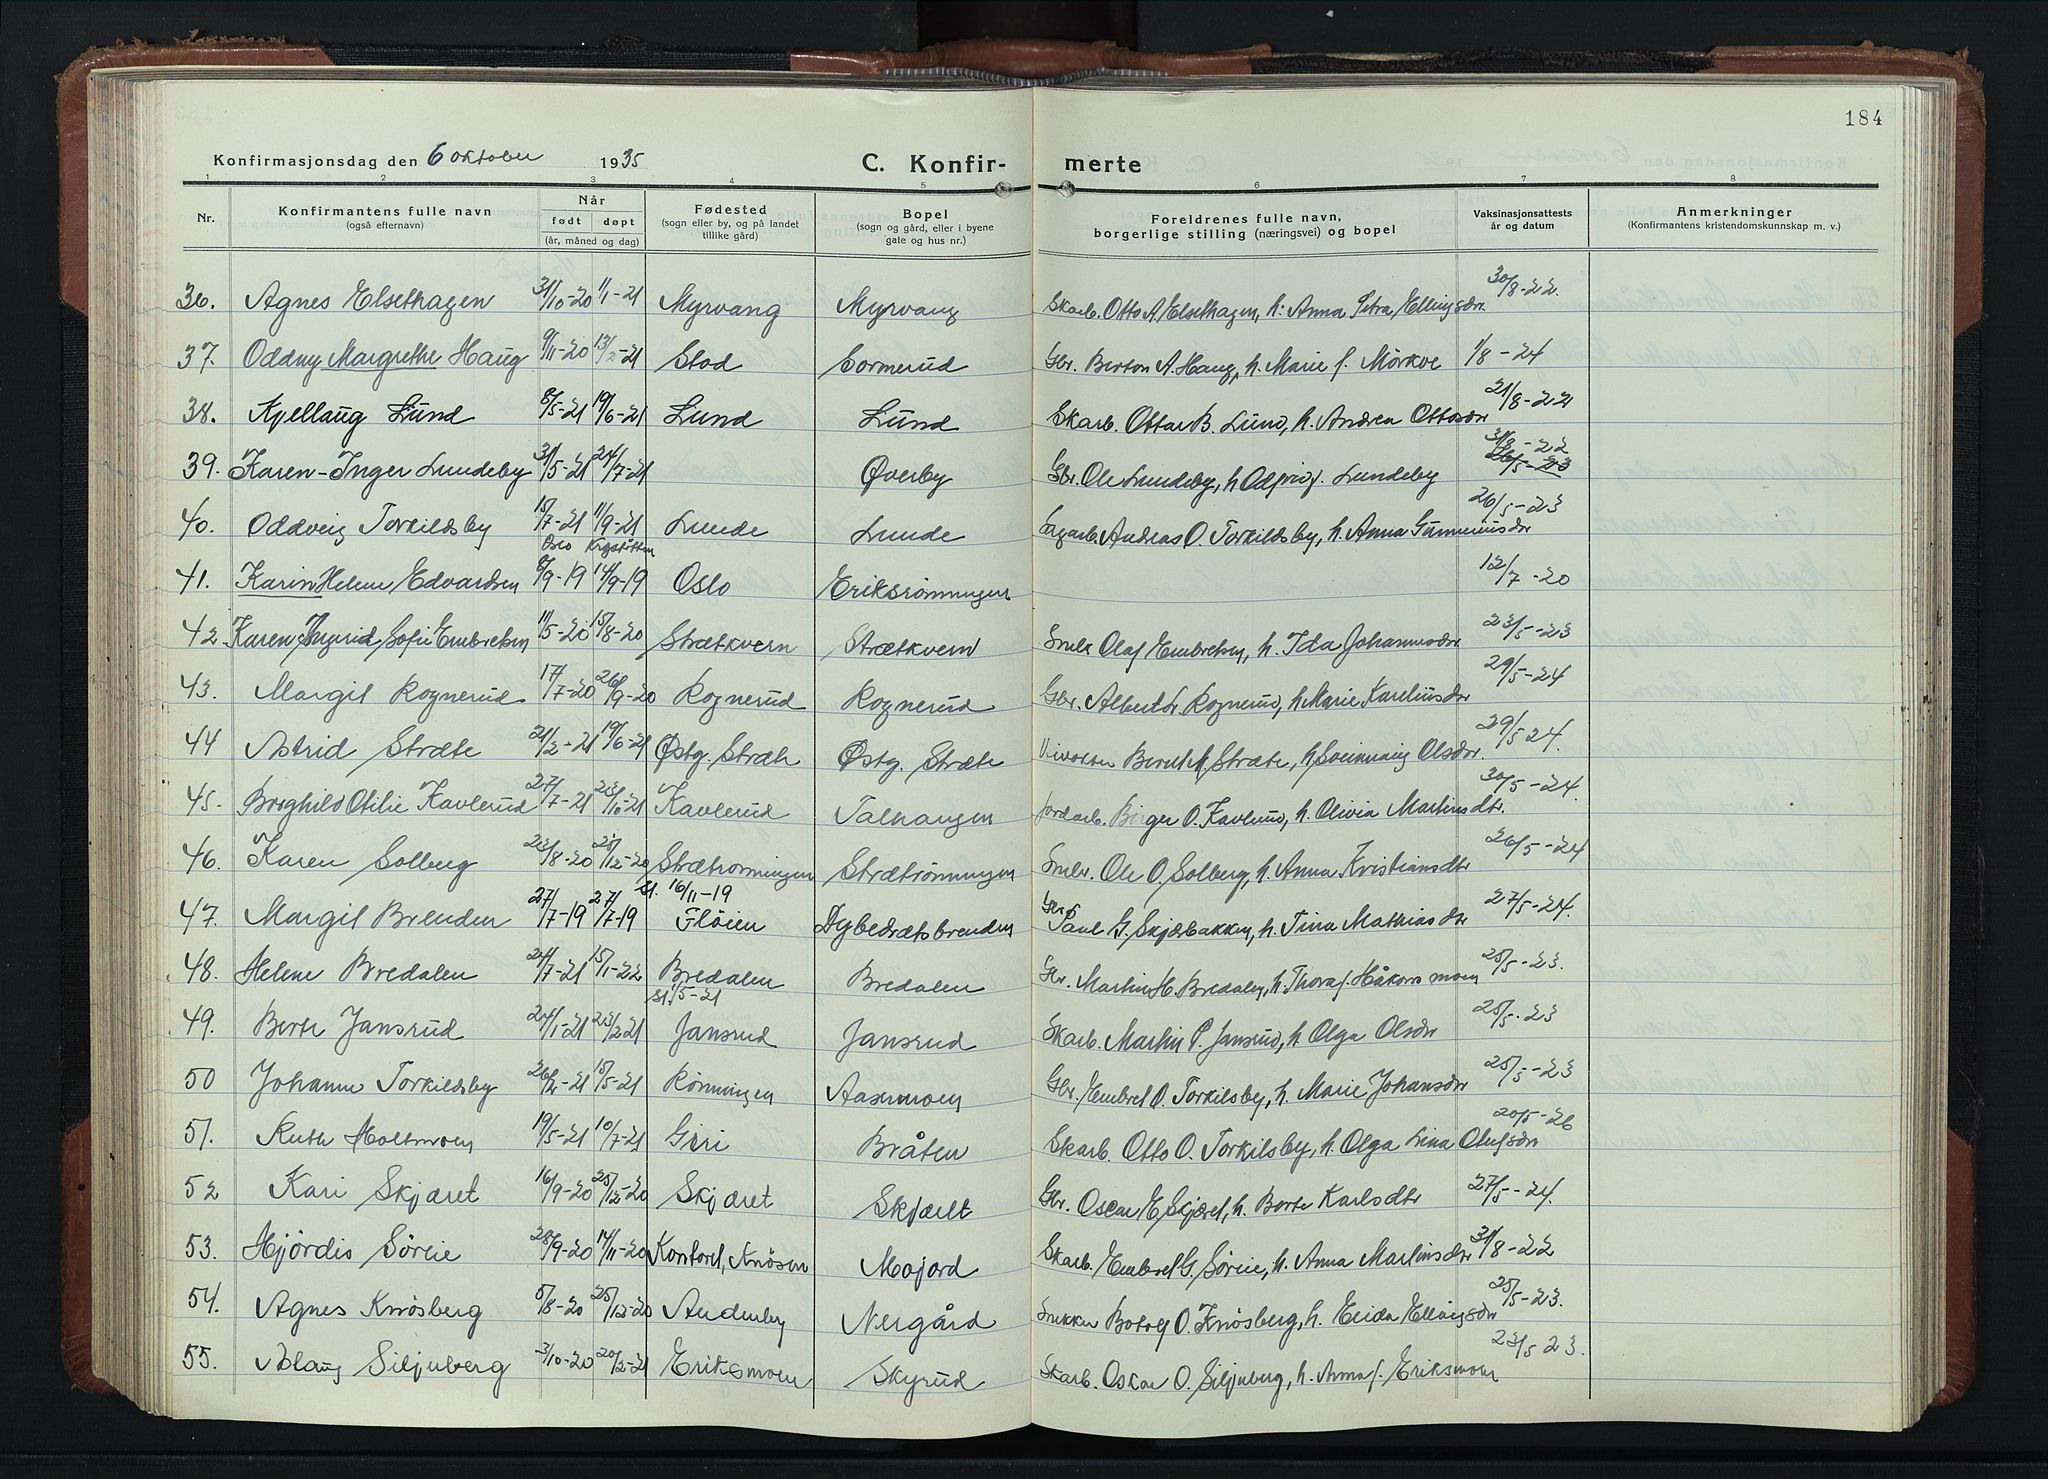 184
Konfirmasjonsdag den 6 oktober 1935 C. Konfir- merte
1 2 3 4 5 6 7 8
Nr. Konfirmantens fulle navn (også efternavn) Når født døpt (år, måned og dag) Fødested (sogn eller by, og på landet tillike gård) Bopel (sogn og gård, eller i byene gate og hus nr.) Foreldrenes fulle navn, borgerlige stilling (næringsvei) og bopel Vaksinasjonsattests år og datum Anmerkninger (Konfirmantens kristendomskunnskap m. v.)
36. Agnes Elsethagen 31/10-20 1/1-21 Myrvang Myrvang Skarb. Otto A. Elsethagen, h. Anna Petra Ellingsdr. 30/8-22.
37. Oddny Margrethe Haug 9/11-20 13/2-21 Stod Gbr. Berton A. Haug, h. Marie f. Mørkve 1/8-24
38. Kjellaug Lund 8/5-21 19/6-21 Lund Lund Skarb. Ottar B. Lund, h. Andrea Ottosdr 21/8-22
39. Karen-Inger Lundeby 31/5-21 24/7-21 Øverby Gbr. Ole Lundeby, h. f. Lundeby 31/8-22 26/5-23
40. Oddveig Torkildsby 15/7-21 11/9-21 Lunde Lunde Andreas O. Torkildsby, h. Anna Gunneriusdr 26/5-23
41. Karin Helene Edvardsen Oslo 8/9-19 14/9-19 Oslo Eriksrønningen 12/7-20
42. Karen Ingrid Sofie Embretsen 11/5-20 15/8-20 Strætkvern Strætkvern Smbr Olaf Embretsen, h. Ida Johannesdr 23/5-23
43. Margit Rognerud 17/7-20 26/9-20 Rognerud Rognerud Gbr. Albert Rognerud, h. Marie Kareliusdr 29/5-24
44 Astrid Stræte 21/2-21 19/6-21 Østg. Stræte Østg. Stræte Bernt M. Stræte, h. Sveinaug Olsdr. 29/5 24.
45. Borghild Otilie Kavlerud 27/7-21 23/10-21 Kavlerud Talhaugen Jordarb. Birger O. Kavlerud, h. Olivia Martinsdtr. 30/5-24.
46. Karen Solberg 23/8-20 25/12-20 Strætrønningen Strætrønningen Smbr. Ole O. Solberg, h. Anna Kristiansdtr 26/5-24
47. Margit Brenden 27/7-19 27/7-19 st. 16/11-19 Fløien Dybedrætsbrenden Gbr. Paul G. Skjærbakken, h. Tina Mathiasdtr 27/5-24.
48. Helene Bredalen 24/7-21 15/1-22 Bredalen Bredalen Gbr. Martin H. Bredalen, h. Thora f. Håkonsmoen 25/5-23.
49. Berte Jansrud 24/1-21 23/2 21 st. 1/5-21 Jansrud Jansrud Skarb. Martin P. Jansrud, h. Olga Olsdr 25/5-23
50 Johanne Torkildsby 26/2-21 15/5-21 Rønningen Aasermoen Gbr. Embret O. Torkilsby, h. Marie Johansdr 25/5-23
51. Ruth Holtmoen 19/5-21 10/7-21 Giri Bråten Skarb. Otto O. Torkilsby, h. Olga Lina Olufsdr 20/5-26
52 Kari Skjæret 16/9-20 25/12-20 Skjæret Skjæret Gbr. Oscar E. Skjæret, h. Berte Karlsdtr 27/5-24.
53. Hjørdis Sørlie 28/9-20 14/11-20 Korstoret, Knøsen Mojord Skarb. Embret G. Sørlie, h. Anna Martinsdtr 31/8-22
54. Agnes Knøsberg 5/8-20 25/12-20 Anderby Nergård Snekker Botolf O. Knøsberg, h. Ellingsdr 25/5-23.
55. Aslaug Siljuberg 3/10-20 20/2-21 Eriksmoen Skyrud Skarb. Oskar O. Siljuberg, h. Anna f. Eriksmoen 23/5 23.